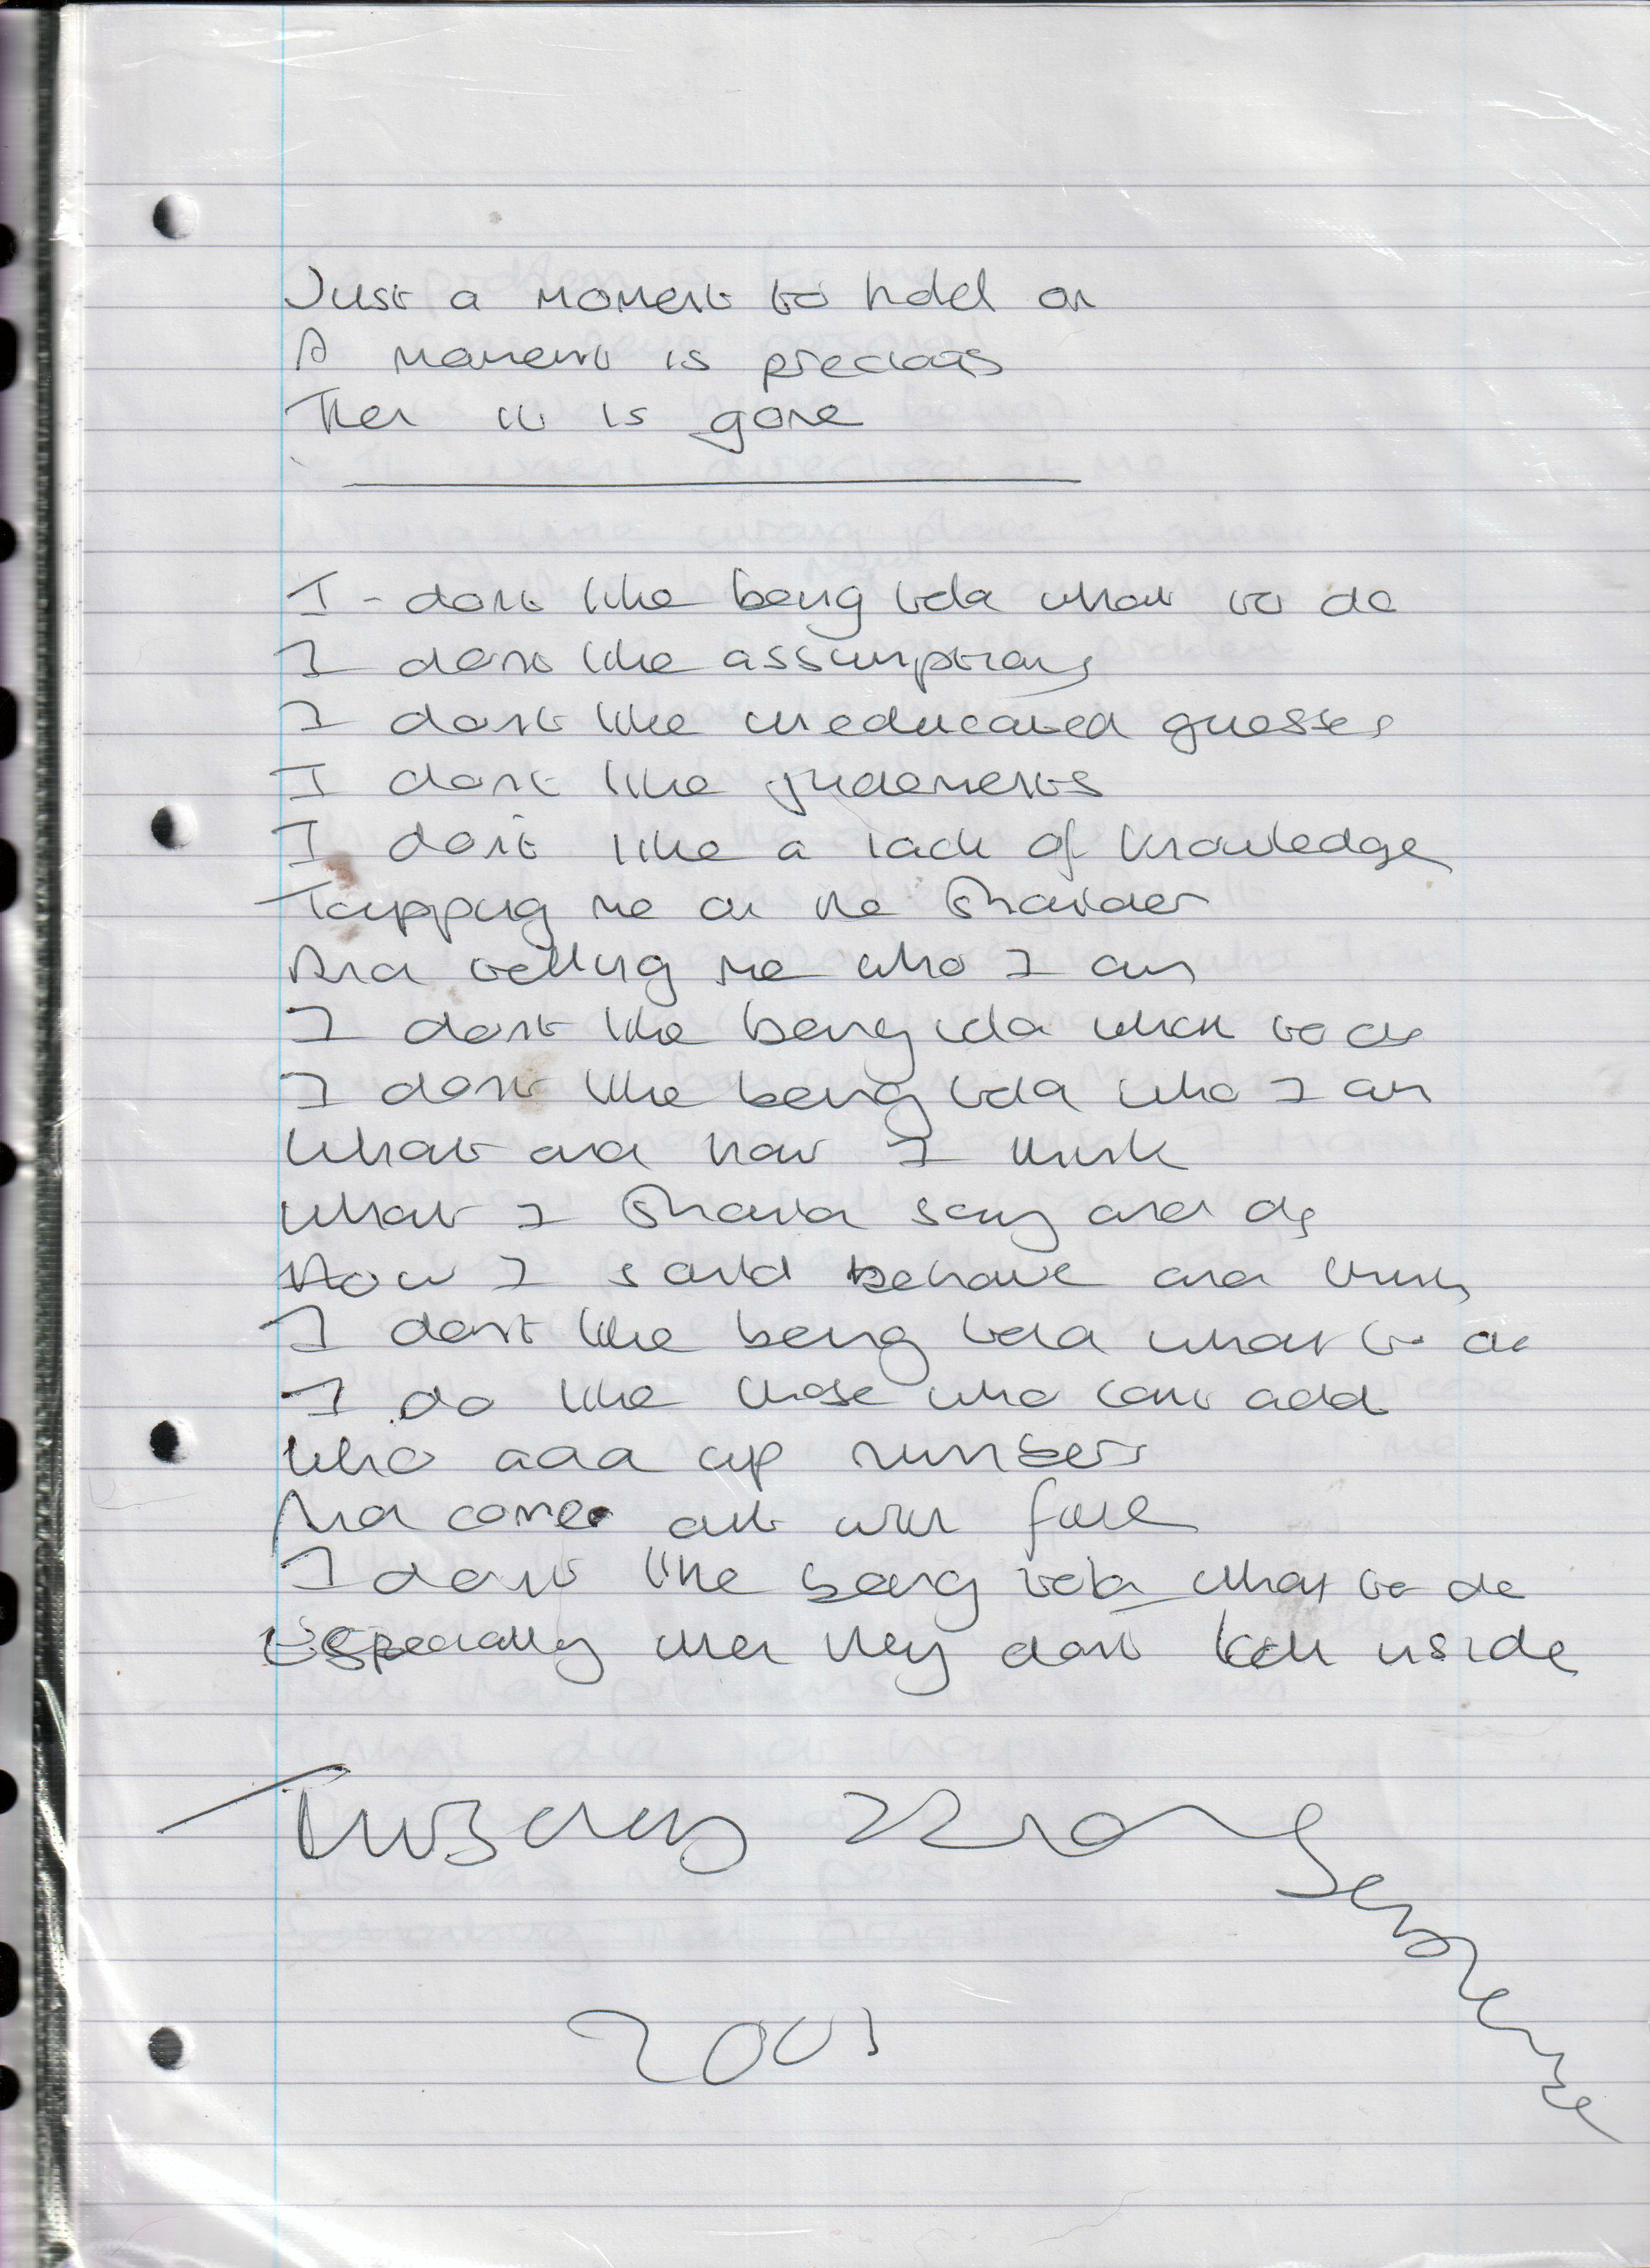 Just a moment to hold on
A moment is precious
Then it is gone
I - dont like being told what to do
I dont like assumptions
I dont like uneducated guesses
I dont like judements
I dont like a lack of knowledge
Tapping me on the shoulder
And telling me who I am
I dont like being told what to do
I dont like being told who I am
What and how I think
What I should say and do
How I sould behave and think
I dont like being told what to do
I do like those who cant add
Who add up numbers
And come out with five
I dont like being told what to do
Especially when they dont look inside
Thursday 22nd
2001